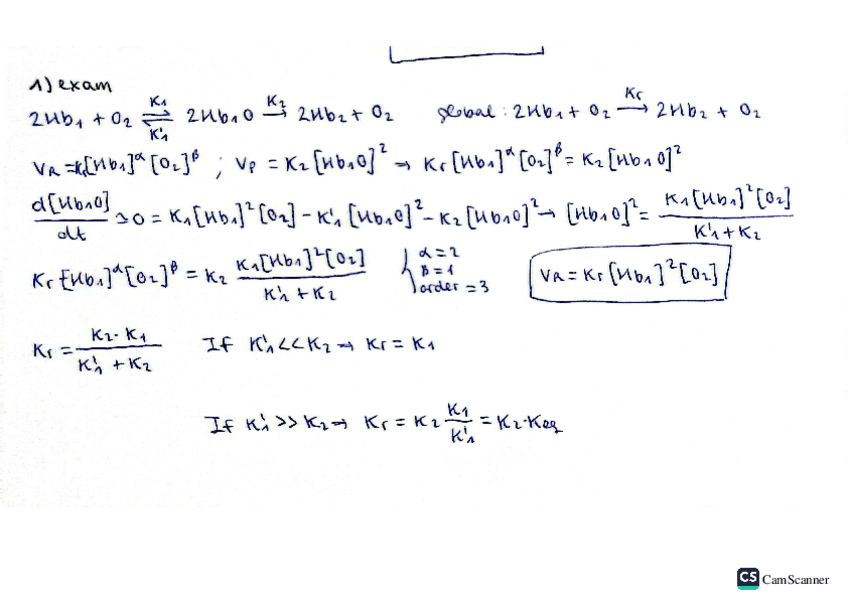 1) exam
2Hb₁ + O₂ ⇌ 2Hb₁O → 2Hb₂ + O₂ global: 2Hb₁ + O₂ → 2Hb₂ + O₂
K₁ K'₁ K₂ Kr
VR = Kr[Hb₁]^α [O₂]^β ; Vp = K₂ [Hb₁O]² → Kr [Hb₁]^α [O₂]^β = K₂ [Hb₁O]²
d[Hb₁O]/dt → 0 = K₁ [Hb₁]² [O₂] - K'₁ [Hb₁O]² - K₂ [Hb₁O]² → [Hb₁O]² = K₁ [Hb₁]² [O₂] / K'₁ + K₂
Kr [Hb₁]^α [O₂]^β = K₂ K₁ [Hb₁]² [O₂] / K'₁ + K₂ { α = 2 β = 1 order = 3 VR = Kr [Hb₁]² [O₂]
Kr = K₂ · K₁ / K'₁ + K₂ If K'₁ << K₂ → Kr = K₁
If K'₁ >> K₂ → Kr = K₂ K₁ / K'₁ = K₂ · Keq
CS CamScanner